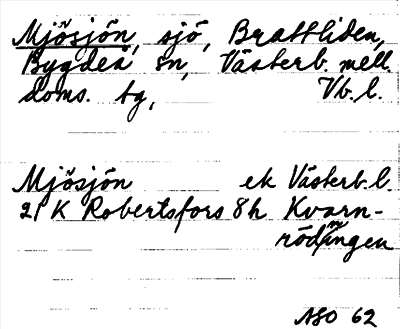 Mjösjön, sjö, Brattliden,
Bygdeå sn, Västerb. mell.
doms. tg, Vb. l.
Mjösjön ek Västerb. l
21 K Robertsfors 8h Kvarn-
rödjningen
ASO 62